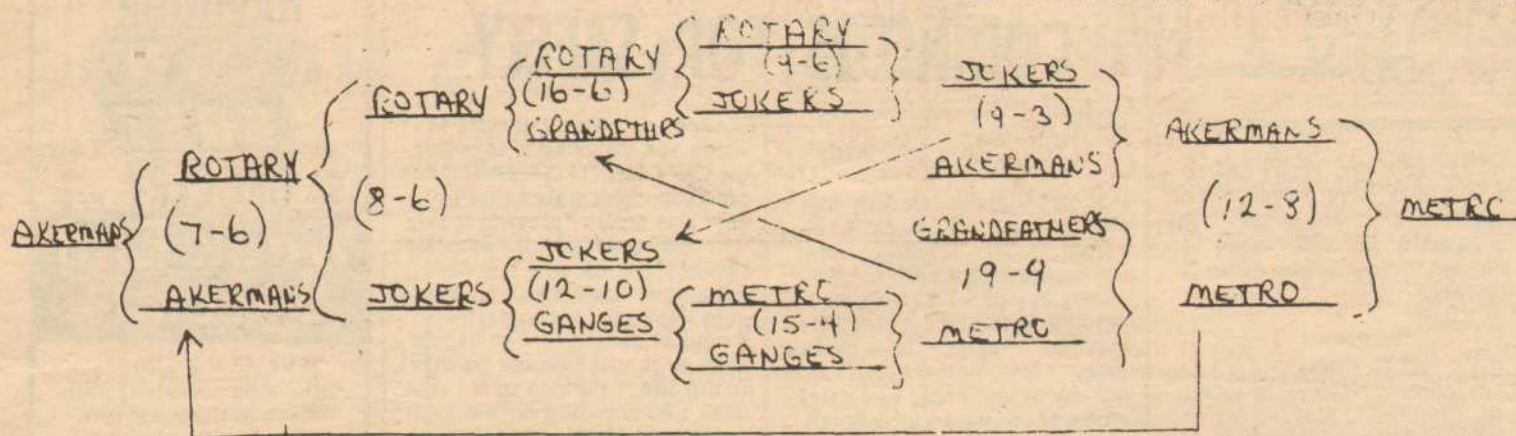 AKERMANS
ROTARY
(7-6)
AKERMANS
ROTARY
(8-6)
JOKERS
ROTARY
(16-6)
GRANDFTHRS
JOKERS
(12-10)
GANGES
ROTARY
(9-6)
JOKERS
METRO
(15-4)
GANGES
JOKERS
(9-3)
AKERMANS
GRANDFATHERS
19-9
METRO
AKERMANS
(12-8)
METRO
METRO